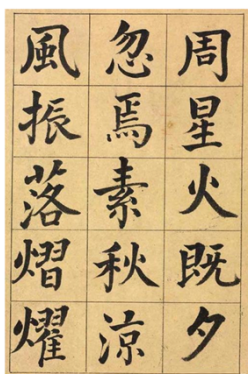 周星火既夕
忽焉素秋涼
風振落熠燿